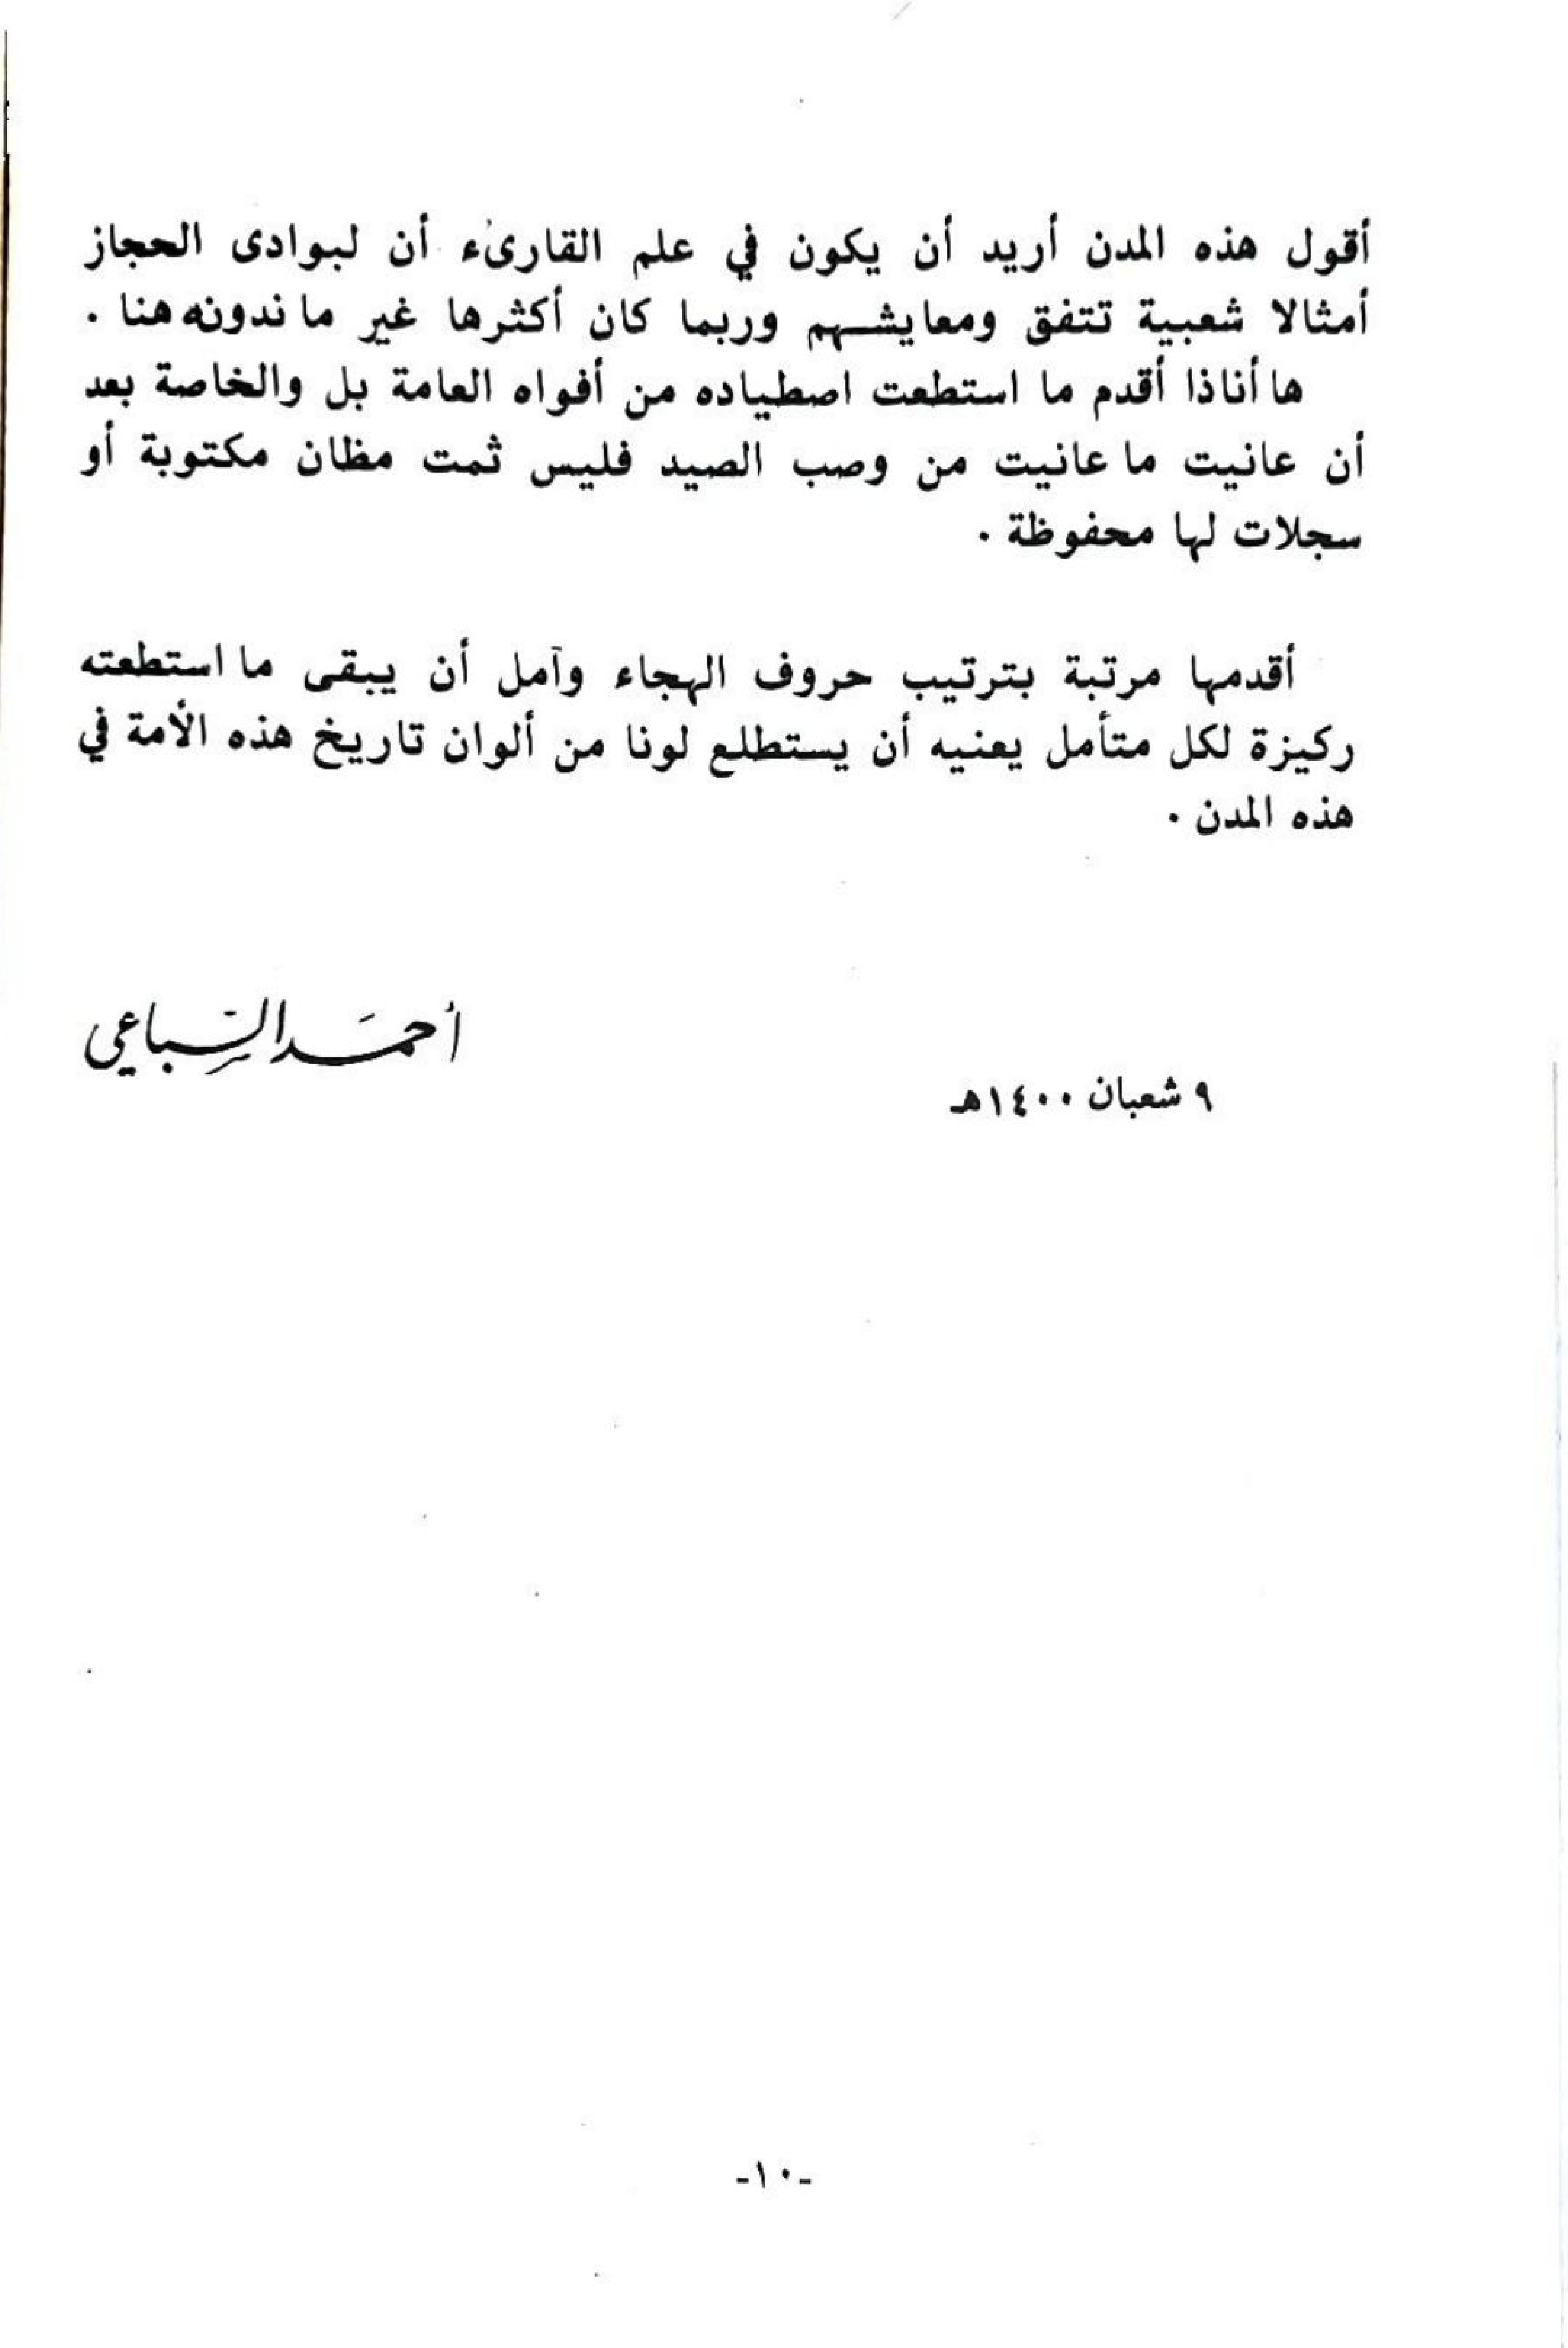 أقول هذه المدن أريد أن يكون في علم القارىء أن لبوادى الحجاز
أمثالا شعبية تتفق ومعايشهم وربما كان أكثرها غير ما ندونه هنا .
ها أناذا أقدم ما استطعت اصطياده من أفواه العامة بل والخاصة بعد
أن عانيت ما عانيت من وصب الصيد فليس ثمت مظان مكتوبة أو
سجلات لها محفوظة .
أقدمها مرتبة بترتيب حروف الهجاء وآمل أن يبقى ما استطعته
ركيزة لكل متأمل يعنيه أن يستطلع لونا من ألوان تاريخ هذه الأمة في
هذه المدن .
أحمد السباعي
٩ شعبان ١٤٠٠هـ
-١٠-